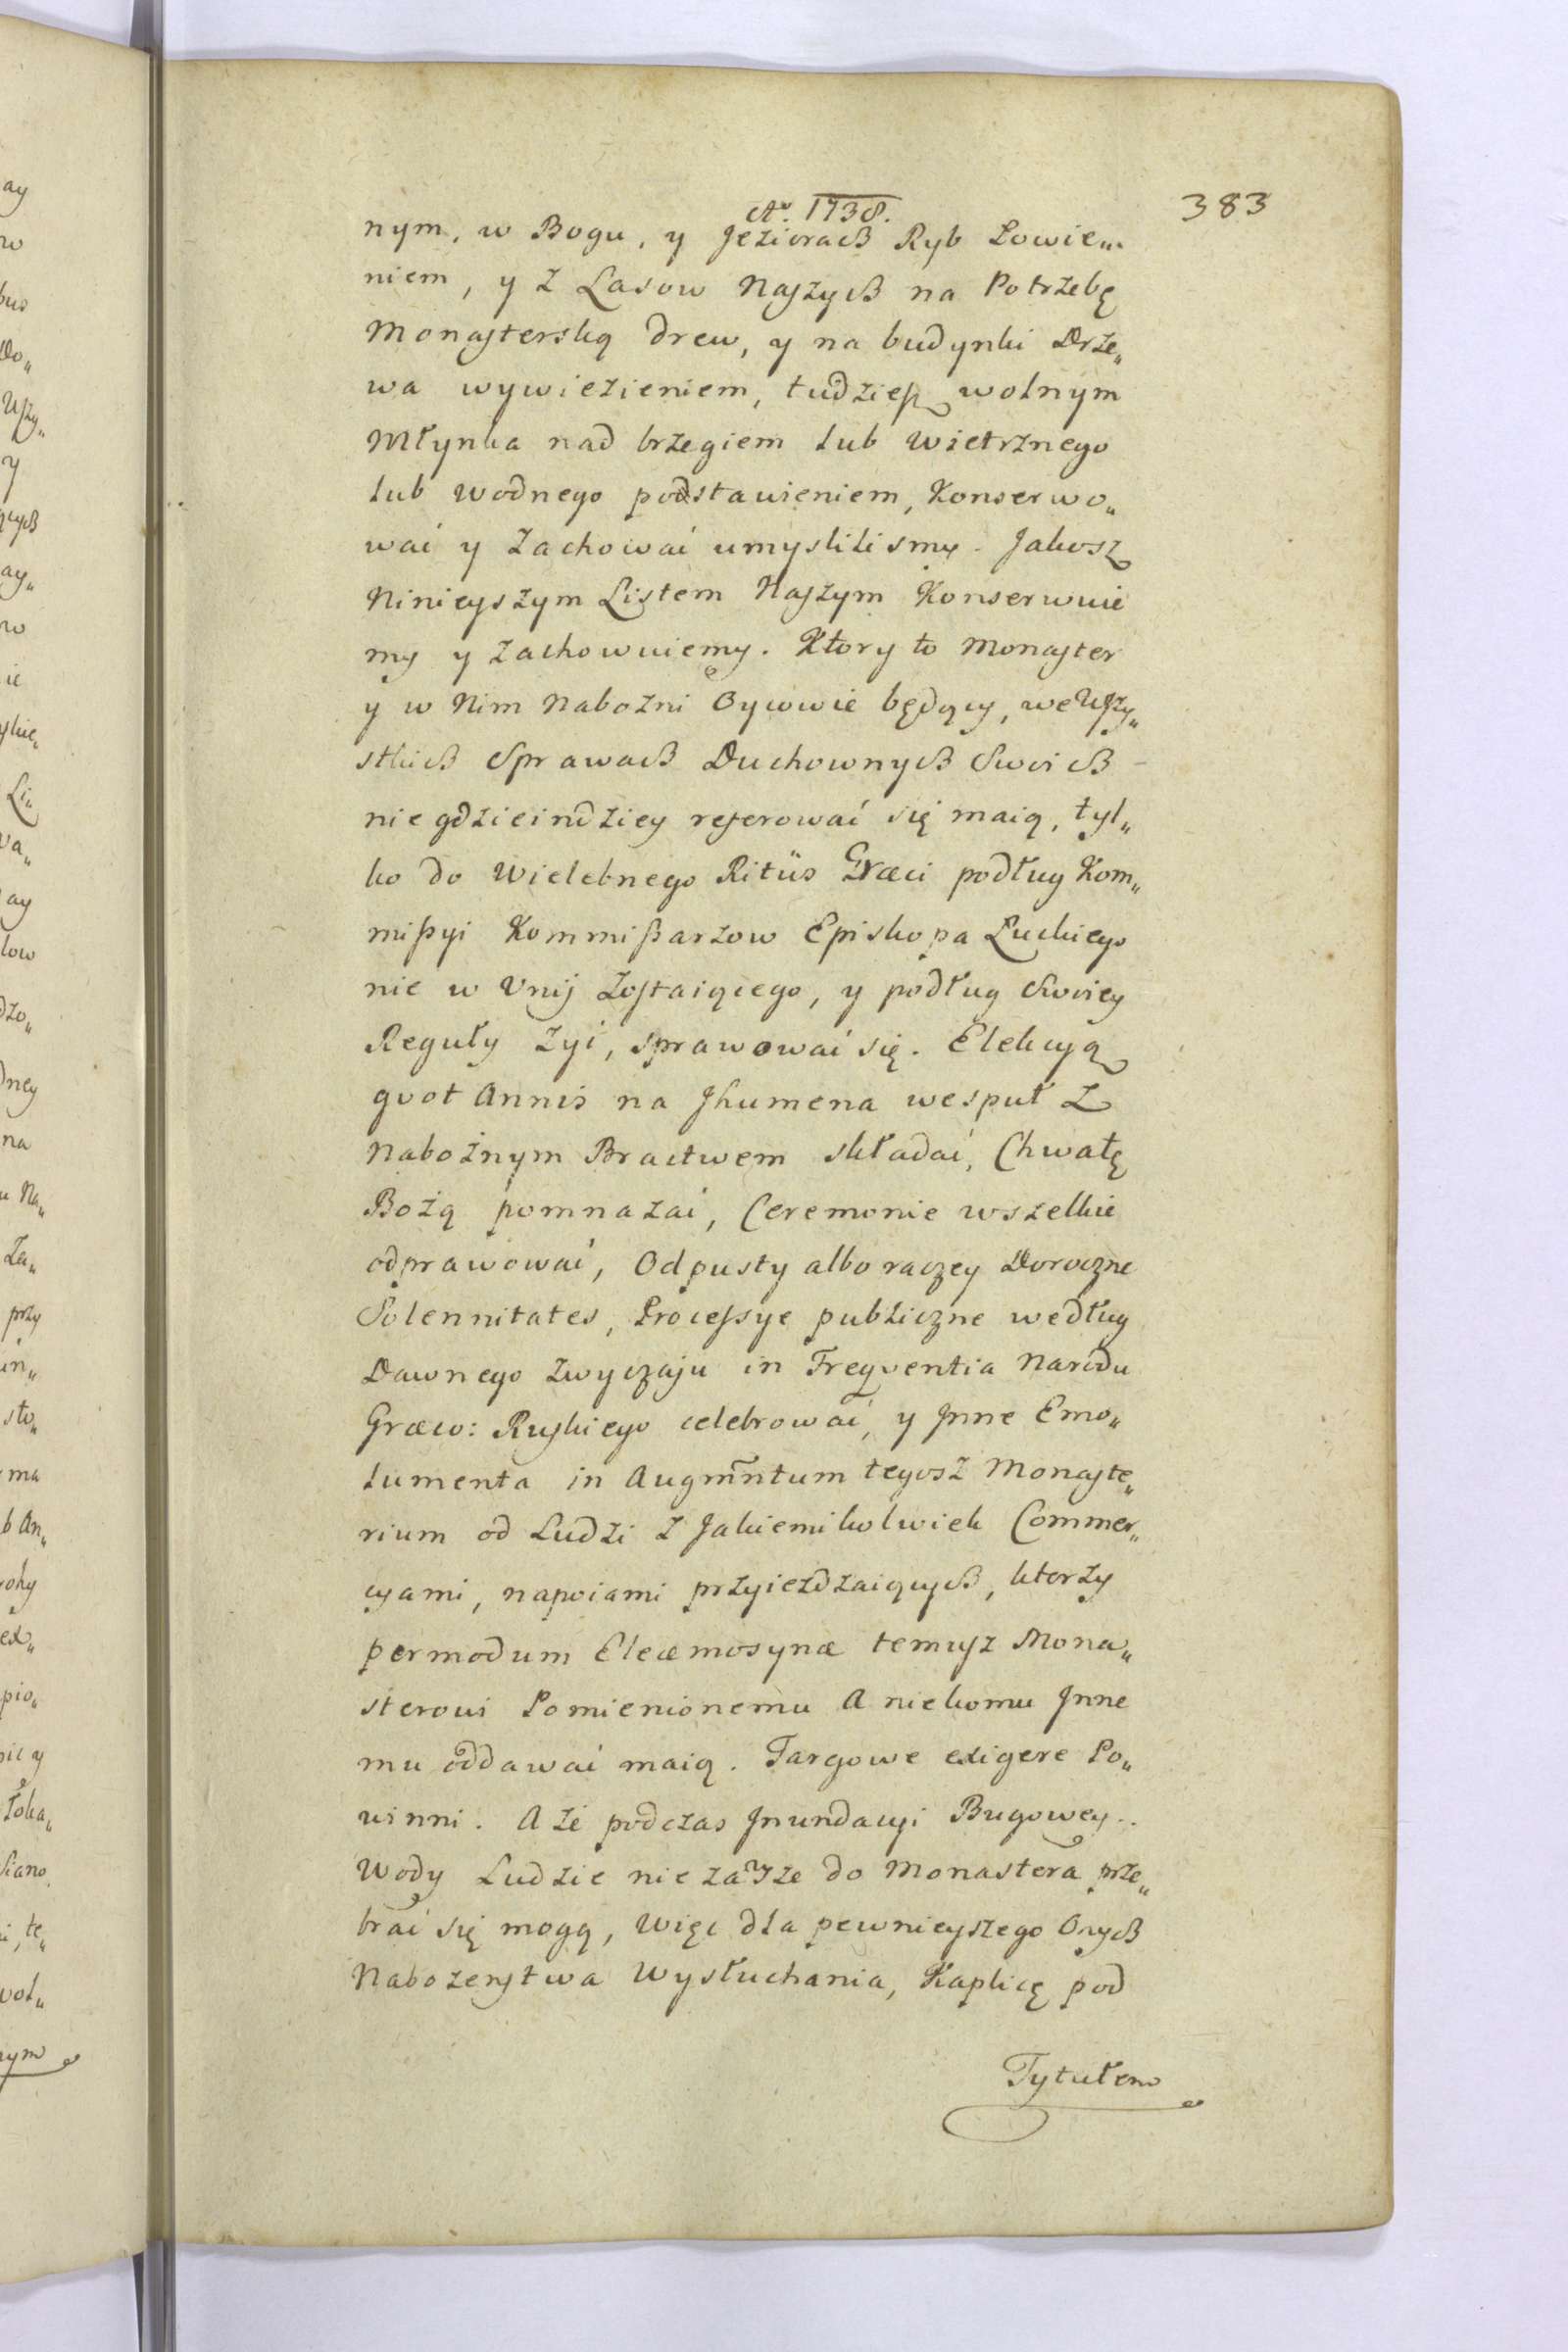 Ao. 1738.
383
nym, w Bogu, y Jeziorach Ryb Łowie„
niem, y z Lasow Naszych na Potrzebę
Monasterską drew, y na budynki Drze„
wa wywiezieniem, tudziesz wolnym
Młynka nad brzegiem lub Wietrznego
lub Wodnego podstawieniem, Konserwo„
wać y Zachować umyslilismy. Jakosz
Ninieyszym Listem Naszym Konserwuie
my y Zachowuiemy. Ktory to Monaster
y w Nim Nabozni Oycowie będący, we Wszy„
stkich Sprawach Duchownych Swoich
nie gdzieindziey referować się maią, tyl„
ko do Wielebnego Ritüs Græci podług Kom„
mißyi Kommißarzow Episkopa Luckiego
nie w Unij Zostaiącego, y podług Swoiey
Reguły Zyć, sprawować się. Elekcyą
qvot Annis na Jhumena wespuł Z
Nabożnym Bractwem składać, Chwałę
Bożą pomnażać, Ceremonie wszelkie
odprawować, Odpusty albo raczey Doroczne
Solennitates, Processye publiczne według
Dawnego Zwyczaju in Freqventia Narodu
Græco: Ruskiego celebrować, y Jnne Emo„
lumenta in Augmntum tegosz Monaste„
rium od Ludzi z Jakiemikolwiek Commer„
cyami, napoiami przyiezdzaiących, ktorzy
per modum Eleæmosynæ temusz Mona„
sterowi Pomienionemu A niekomu Jnne
mu oddawać maią. Targowe exigere Po„
winni. A że podczas Jnundacyi Bugowey
Wody Ludzie nie zawsze do Monastera prze„
brać się mogą, Więc dla pewnieyszego Onych
Nabozenstwa Wysłuchania, Kaplicę pod
Tytułem